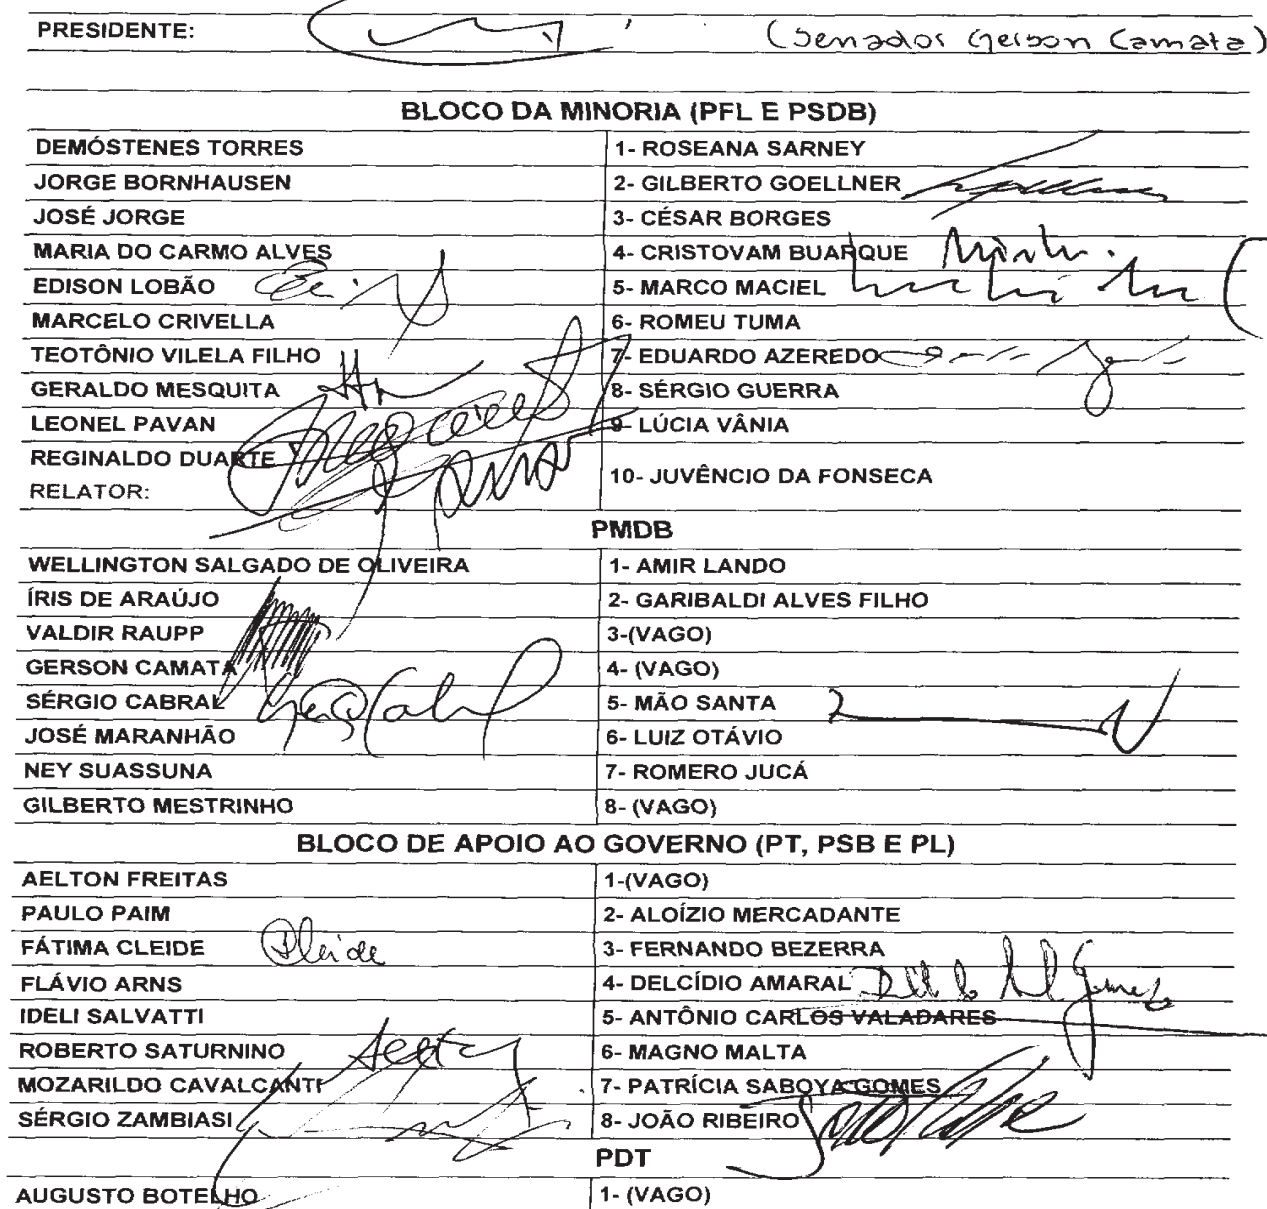 PRESIDENTE: (Senador Gerson Camata)
BLOCO DA MINORIA (PFL E PSDB)
DEMÓSTENES TORRES 1- ROSEANA SARNEY
JORGE BORNHAUSEN 2- GILBERTO GOELLNER
JOSÉ JORGE 3- CÉSAR BORGES
MARIA DO CARMO ALVES 4- CRISTOVAM BUARQUE
EDISON LOBÃO 5- MARCO MACIEL
MARCELO CRIVELLA 6- ROMEU TUMA
TEOTÔNIO VILELA FILHO 7- EDUARDO AZEREDO
GERALDO MESQUITA 8- SÉRGIO GUERRA
LEONEL PAVAN 9- LÚCIA VÂNIA
REGINALDO DUARTE
RELATOR: 10- JUVÊNCIO DA FONSECA
PMDB
WELLINGTON SALGADO DE OLIVEIRA 1- AMIR LANDO
ÍRIS DE ARAÚJO 2- GARIBALDI ALVES FILHO
VALDIR RAUPP 3-(VAGO)
GERSON CAMATA 4- (VAGO)
SÉRGIO CABRAL 5- MÃO SANTA
JOSÉ MARANHÃO 6- LUIZ OTÁVIO
NEY SUASSUNA 7- ROMERO JUCÁ
GILBERTO MESTRINHO 8- (VAGO)
BLOCO DE APOIO AO GOVERNO (PT, PSB E PL)
AELTON FREITAS 1-(VAGO)
PAULO PAIM 2- ALOÍZIO MERCADANTE
FÁTIMA CLEIDE Cleide 3- FERNANDO BEZERRA
FLÁVIO ARNS 4- DELCÍDIO AMARAL
IDELI SALVATTI 5- ANTÔNIO CARLOS VALADARES
ROBERTO SATURNINO 6- MAGNO MALTA
MOZARILDO CAVALCANTI 7- PATRÍCIA SABOYA GOMES
SÉRGIO ZAMBIASI 8- JOÃO RIBEIRO
PDT
AUGUSTO BOTELHO 1- (VAGO)